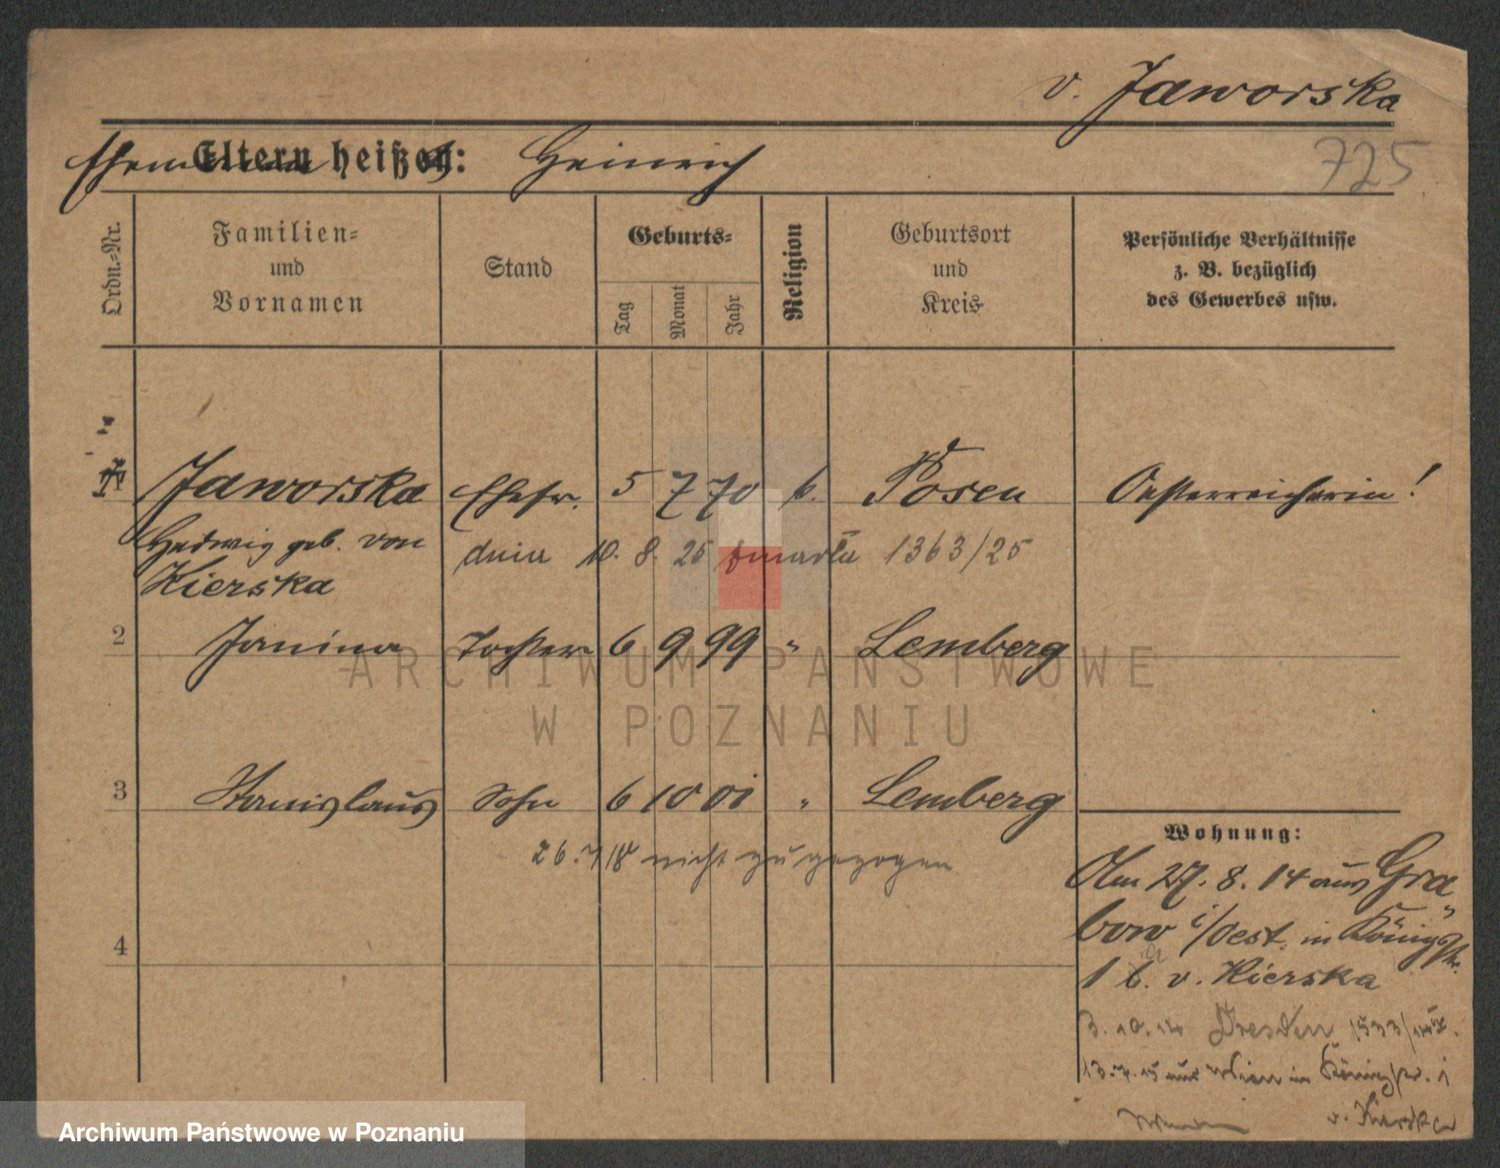 v. Jaworska
Eltern heißen: Heinrich
725
Ordn.-Nr.
Familien-
und
Vornamen
Stand
Geburts-
Tag
Monat
Jahr
Religion
Geburtsort
und
Kreis
Persönliche Verhältnisse
z. B. bezüglich
des Gewerbes usw.
Jaworska Ehefr. 5 7 70 k. Posen Oesterreicherin!
Hedwig geb. von
Kierska
dnia 10. 8. 25 zmarła 1363/25
2 Janina Tochter 6 9 99 " Lemberg
3 Stanislaus Sohn 6 10 01 " Lemberg
nicht zugezogen
4
Wohnung:
Am 27. 8. 14 aus Gra
bow i/Oest. in Königstr.
1 b. v. Kierska
3. 10. 14 Dresden
13. 7. 15 aus Wien in Königstr. 1
v. Kierska
ARCHIWUM PAŃSTWOWE
W POZNANIU
Archiwum Państwowe w Poznaniu